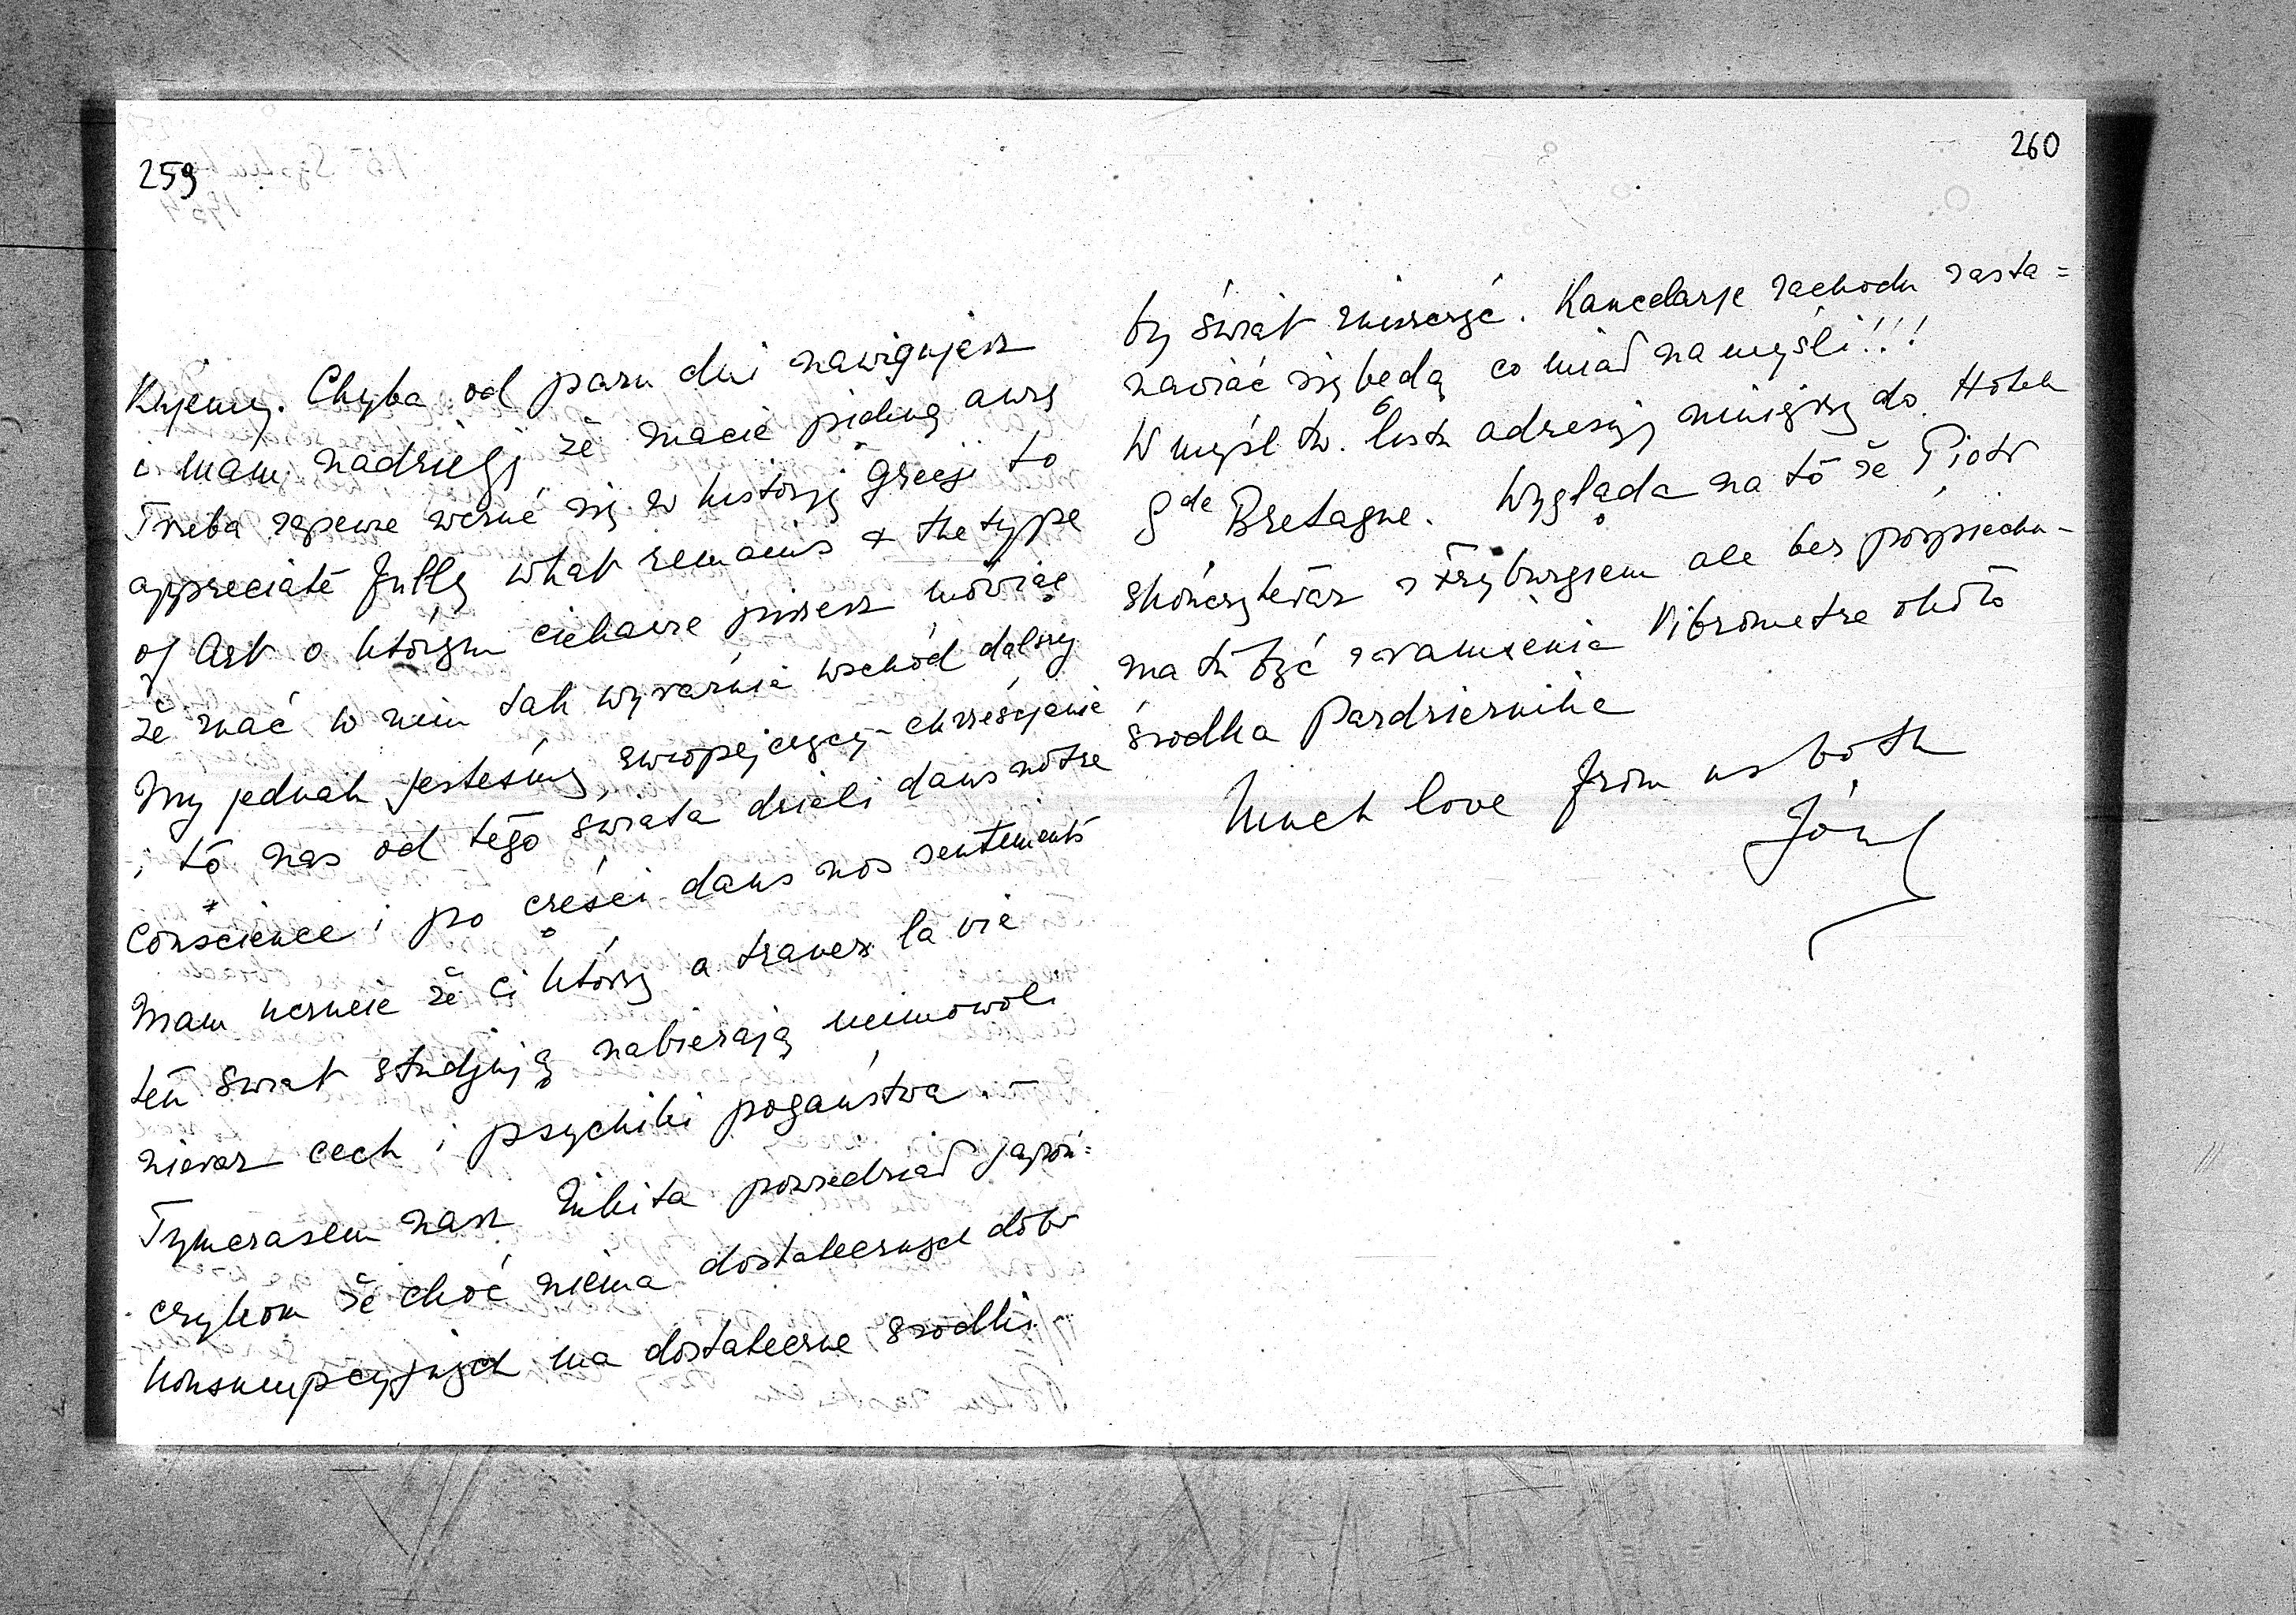 259
Kryjemy. Chyba od paru dni nawigujesz
i mam nadzieję że macie piękną aurę
Trzeba zapewne wczuć się w historję Grecji to
appreciate fully what remains & the type
of Art o którym ciekawie piszesz mówiąc
że znać w nim tak wyraźnie wschód dalszy
My jednak jesteśmy europejczycy-chrześcjanie
i to nas od tego świata dzieli dans notre
conscience i po części dans nos sentiments
Mam uczucie że ci którzy a travers la vie
ten świat studjują nabierają mimowoli
nieraz cech i psychiki pogaństwa.-
Tymczasem nasz Nikita powiedział Japoń=
czykom że choć niema dostatecznych dóbr
konsumpcyjnych ma dostateczne środki
260
by świat zniszczyć. Kancelarje zachodu zasta=
nawiać się będą co miał na myśli!!!
W myśl tw. listu adresuję niniejszy do Hotelu
Gde Bretagne. Wygląda na to że Piotr
skończy teraz z Fryburgiem ale bez pośpiechu-
ma tu być Vibrometre około
środka Października
Much love from us both
Józef